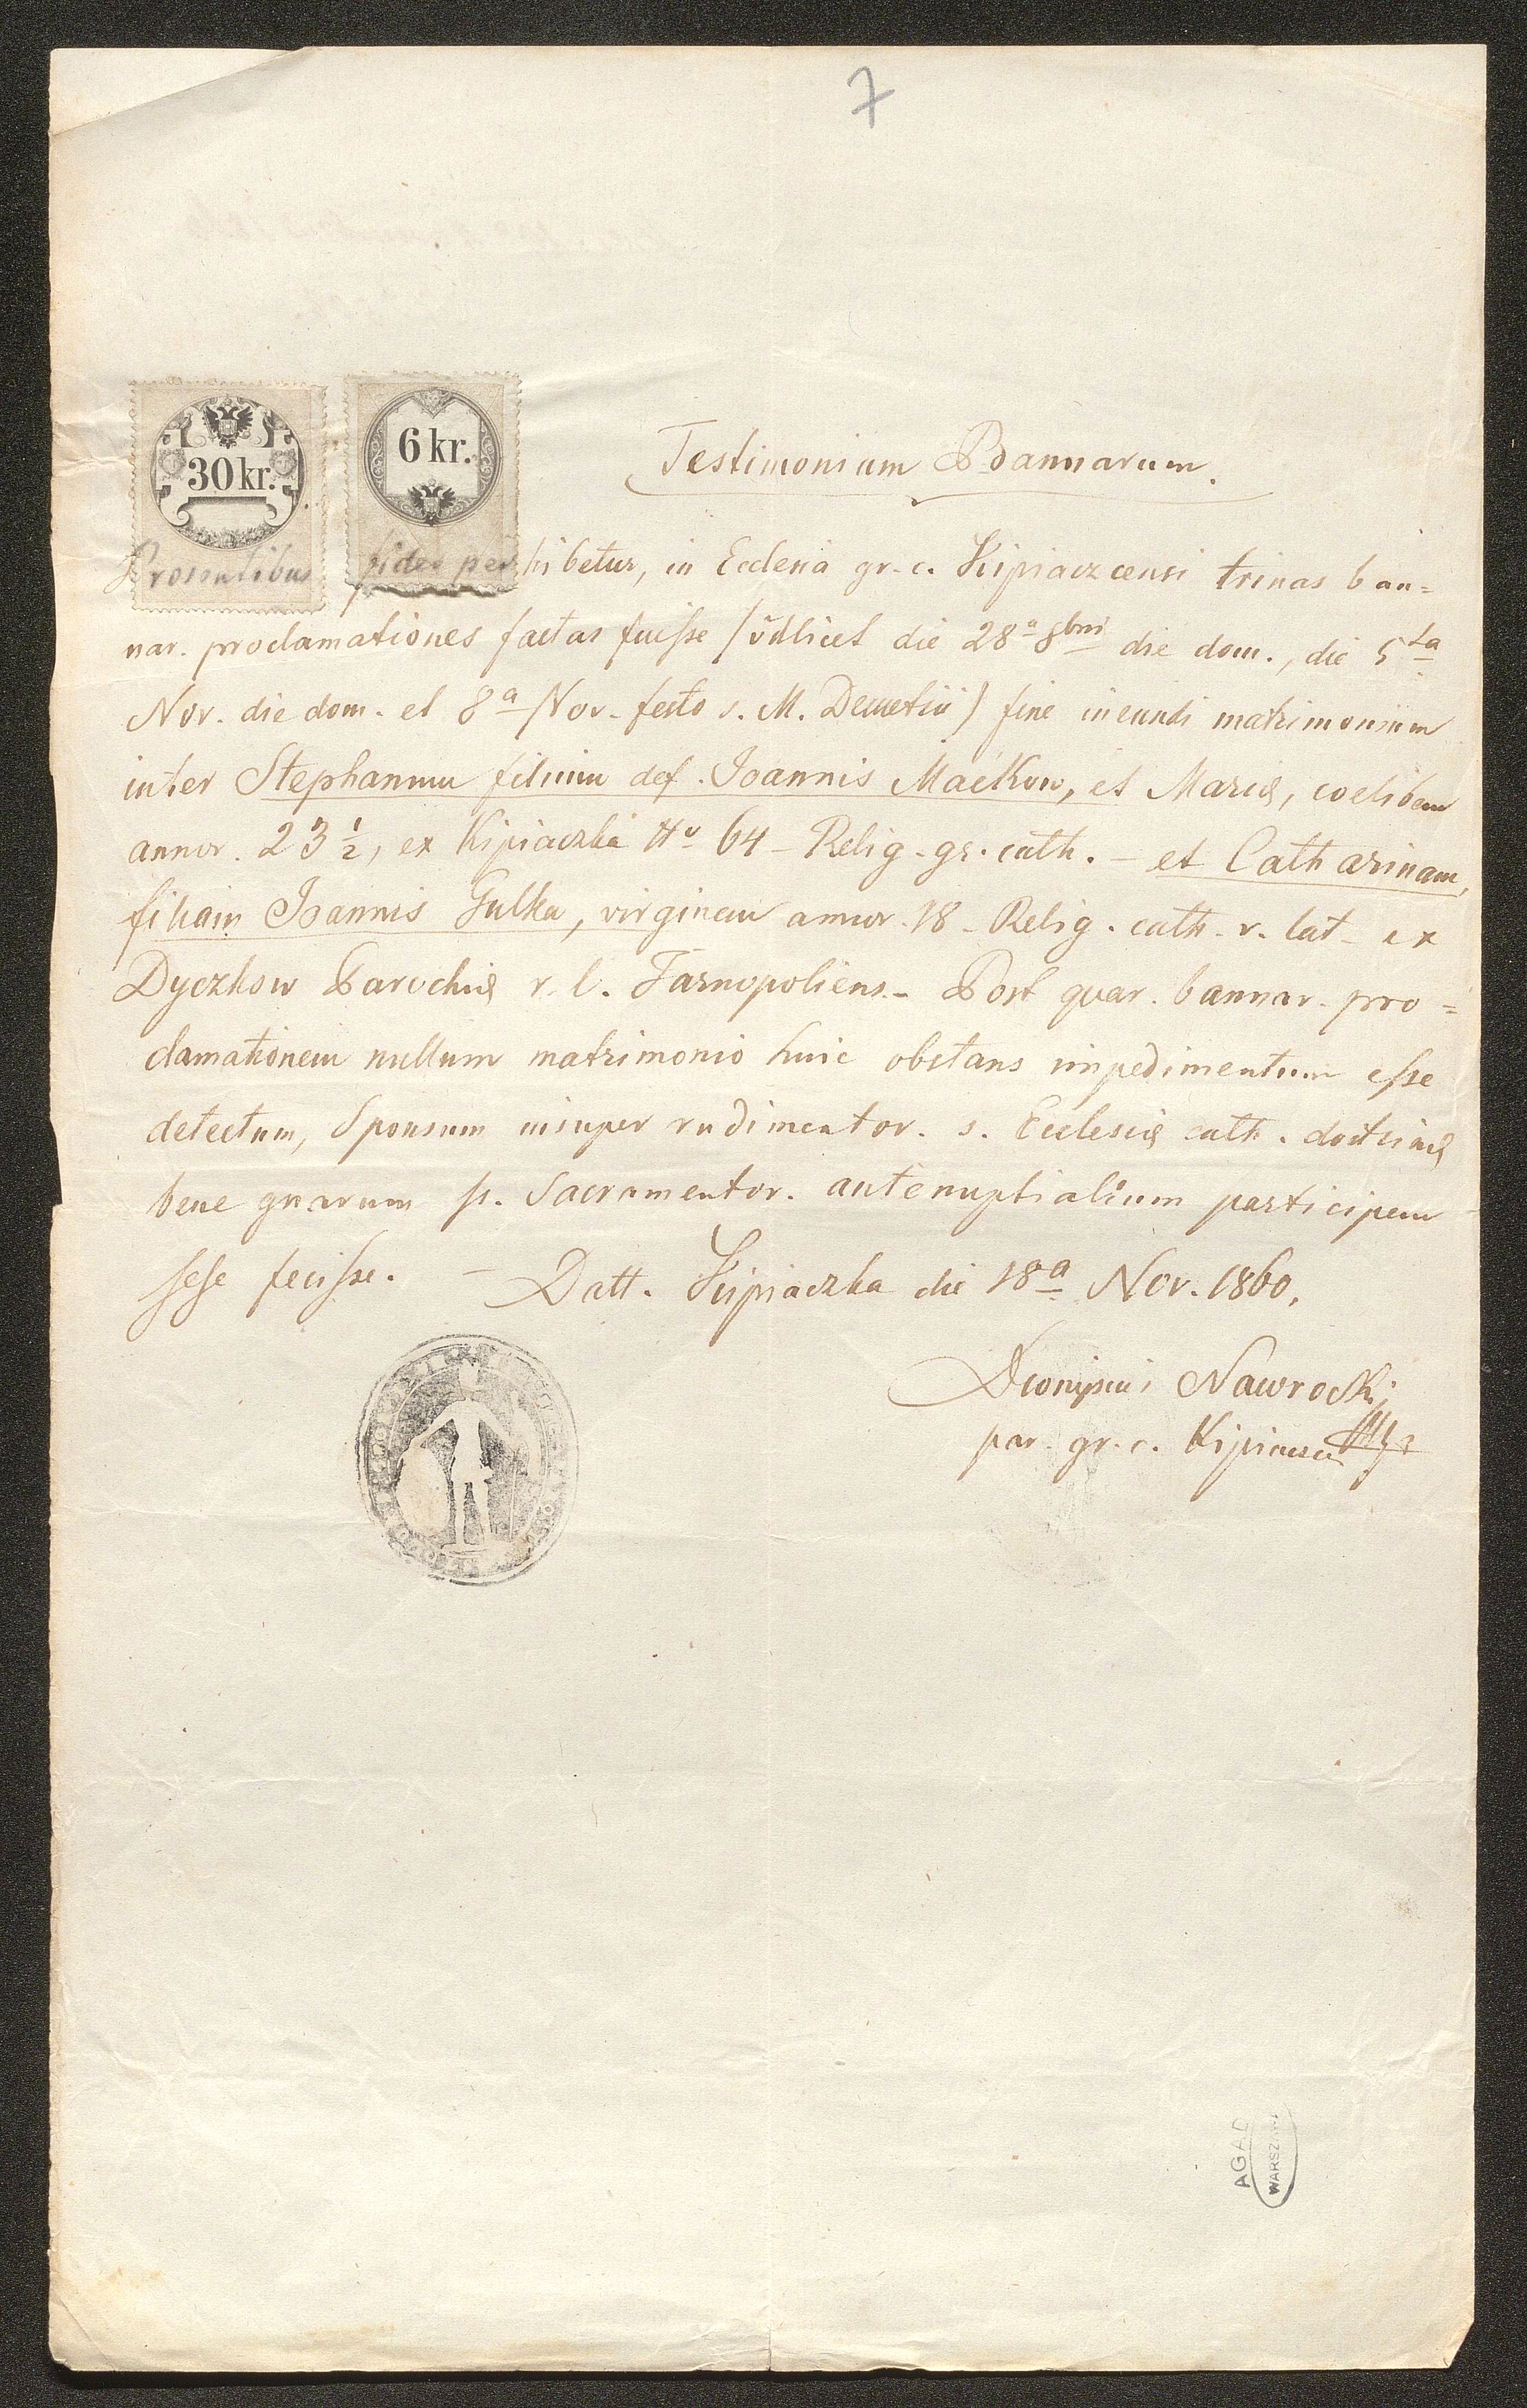 7
30 kr.
6 kr.
Testimonium Bannarum.
Presentibus fides perhibetur, in Ecclesia gr. c. Kipiaczcensi trinas ban=
nar. proclamationes factas fuisse /vdlicet die 28a 8bris die dom., die 5ta
Nov. die dom. et 8a Nov. festo s. M. Demetrii/ fine ineundi matrimonium
inter Stephanum filium def. Joannis Maćkow, et Mariæ, coelibem
annor. 23 1/2, ex Kipiaczka No 64 - Relig. gr. cath. - et Catharinam,
filiam Joannis Gulka, virginem annor. 18 - Relig. cath. r. lat. ex
Dyczkow Parochiæ r. l. Tarnopoliens. - Post quar. bannar. pro=
clamationem nullum matrimonio huic obstans impedimentum esse
detectum, Sponsum insuper rudimentor. s. Ecclesiæ cath. doctrinæ
bene gnarum ss. Sacramentor. antenuptialium participem
sese fecisse. - Datt. Kipiaczka die 18a Nov. 1860.
Dionysius Nawrocki
par. gr. c.
AGAD
WARSZAWA